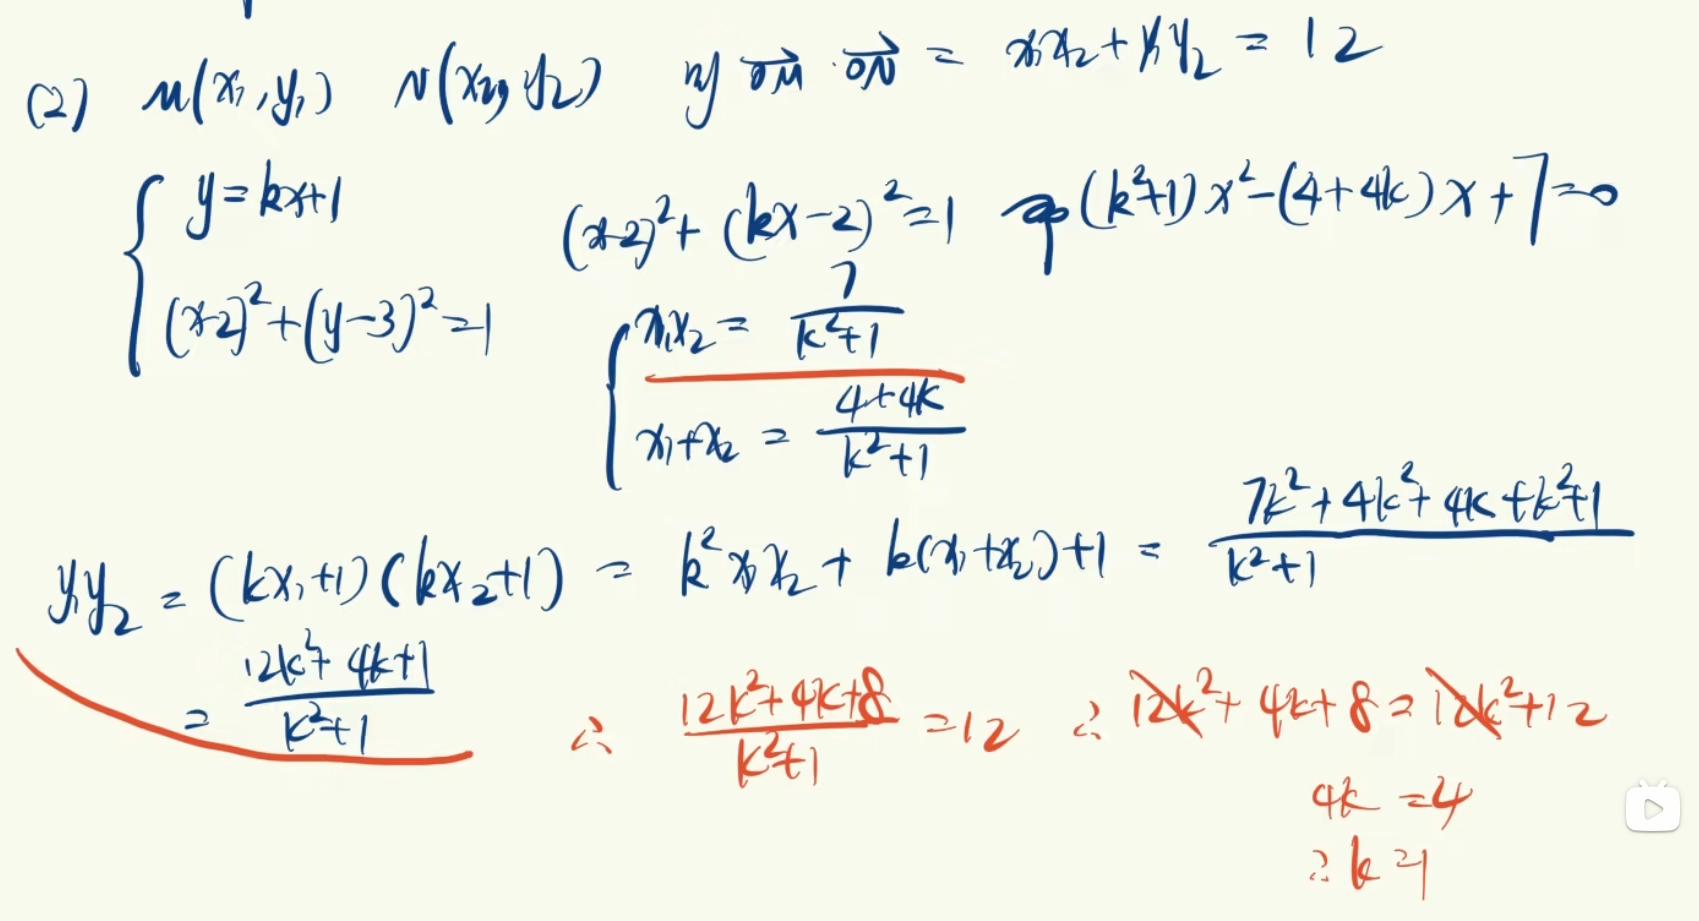 (2) M(x₁,y₁) N(x₂,y₂) 则 \overrightarrow{OM}·\overrightarrow{ON} = x₁x₂+y₁y₂ = 12
{ y=kx+1
(x-2)²+(y-3)²=1
(x-2)²+(kx-2)²=1 即 (k²+1)x²-(4+4k)x+7=0
{ x₁x₂ = \frac{7}{k²+1}
x₁+x₂ = \frac{4+4k}{k²+1}
y₁y₂ = (kx₁+1)(kx₂+1) = k²x₁x₂+k(x₁+x₂)+1 = \frac{7k²+4k²+4k+k²+1}{k²+1}
= \frac{12k²+4k+1}{k²+1} ∴ \frac{12k²+4k+8}{k²+1} =12 ∴ 12k²+4k+8=12k²+12
4k=4
∴k=1